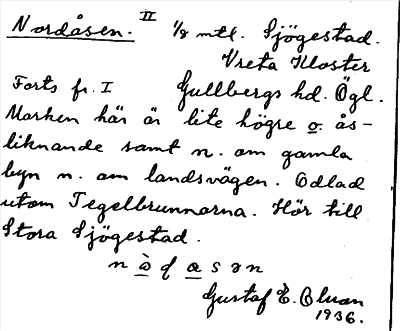 Nordåsen. II 1/8 mtl. Sjögestad.
Vreta Kloster
Forts fr. I Gullbergs hd. Ögl.
Marken här är lite högre o. ås-
liknande samt n. om gamla
byn n. om landsvägen. Odlad
utom Tegelbrunnarna. Hör till
Stora Sjögestad.
Gustaf E.
1936.